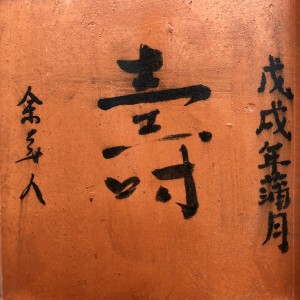 戊戌年蒲月
壽
余年人